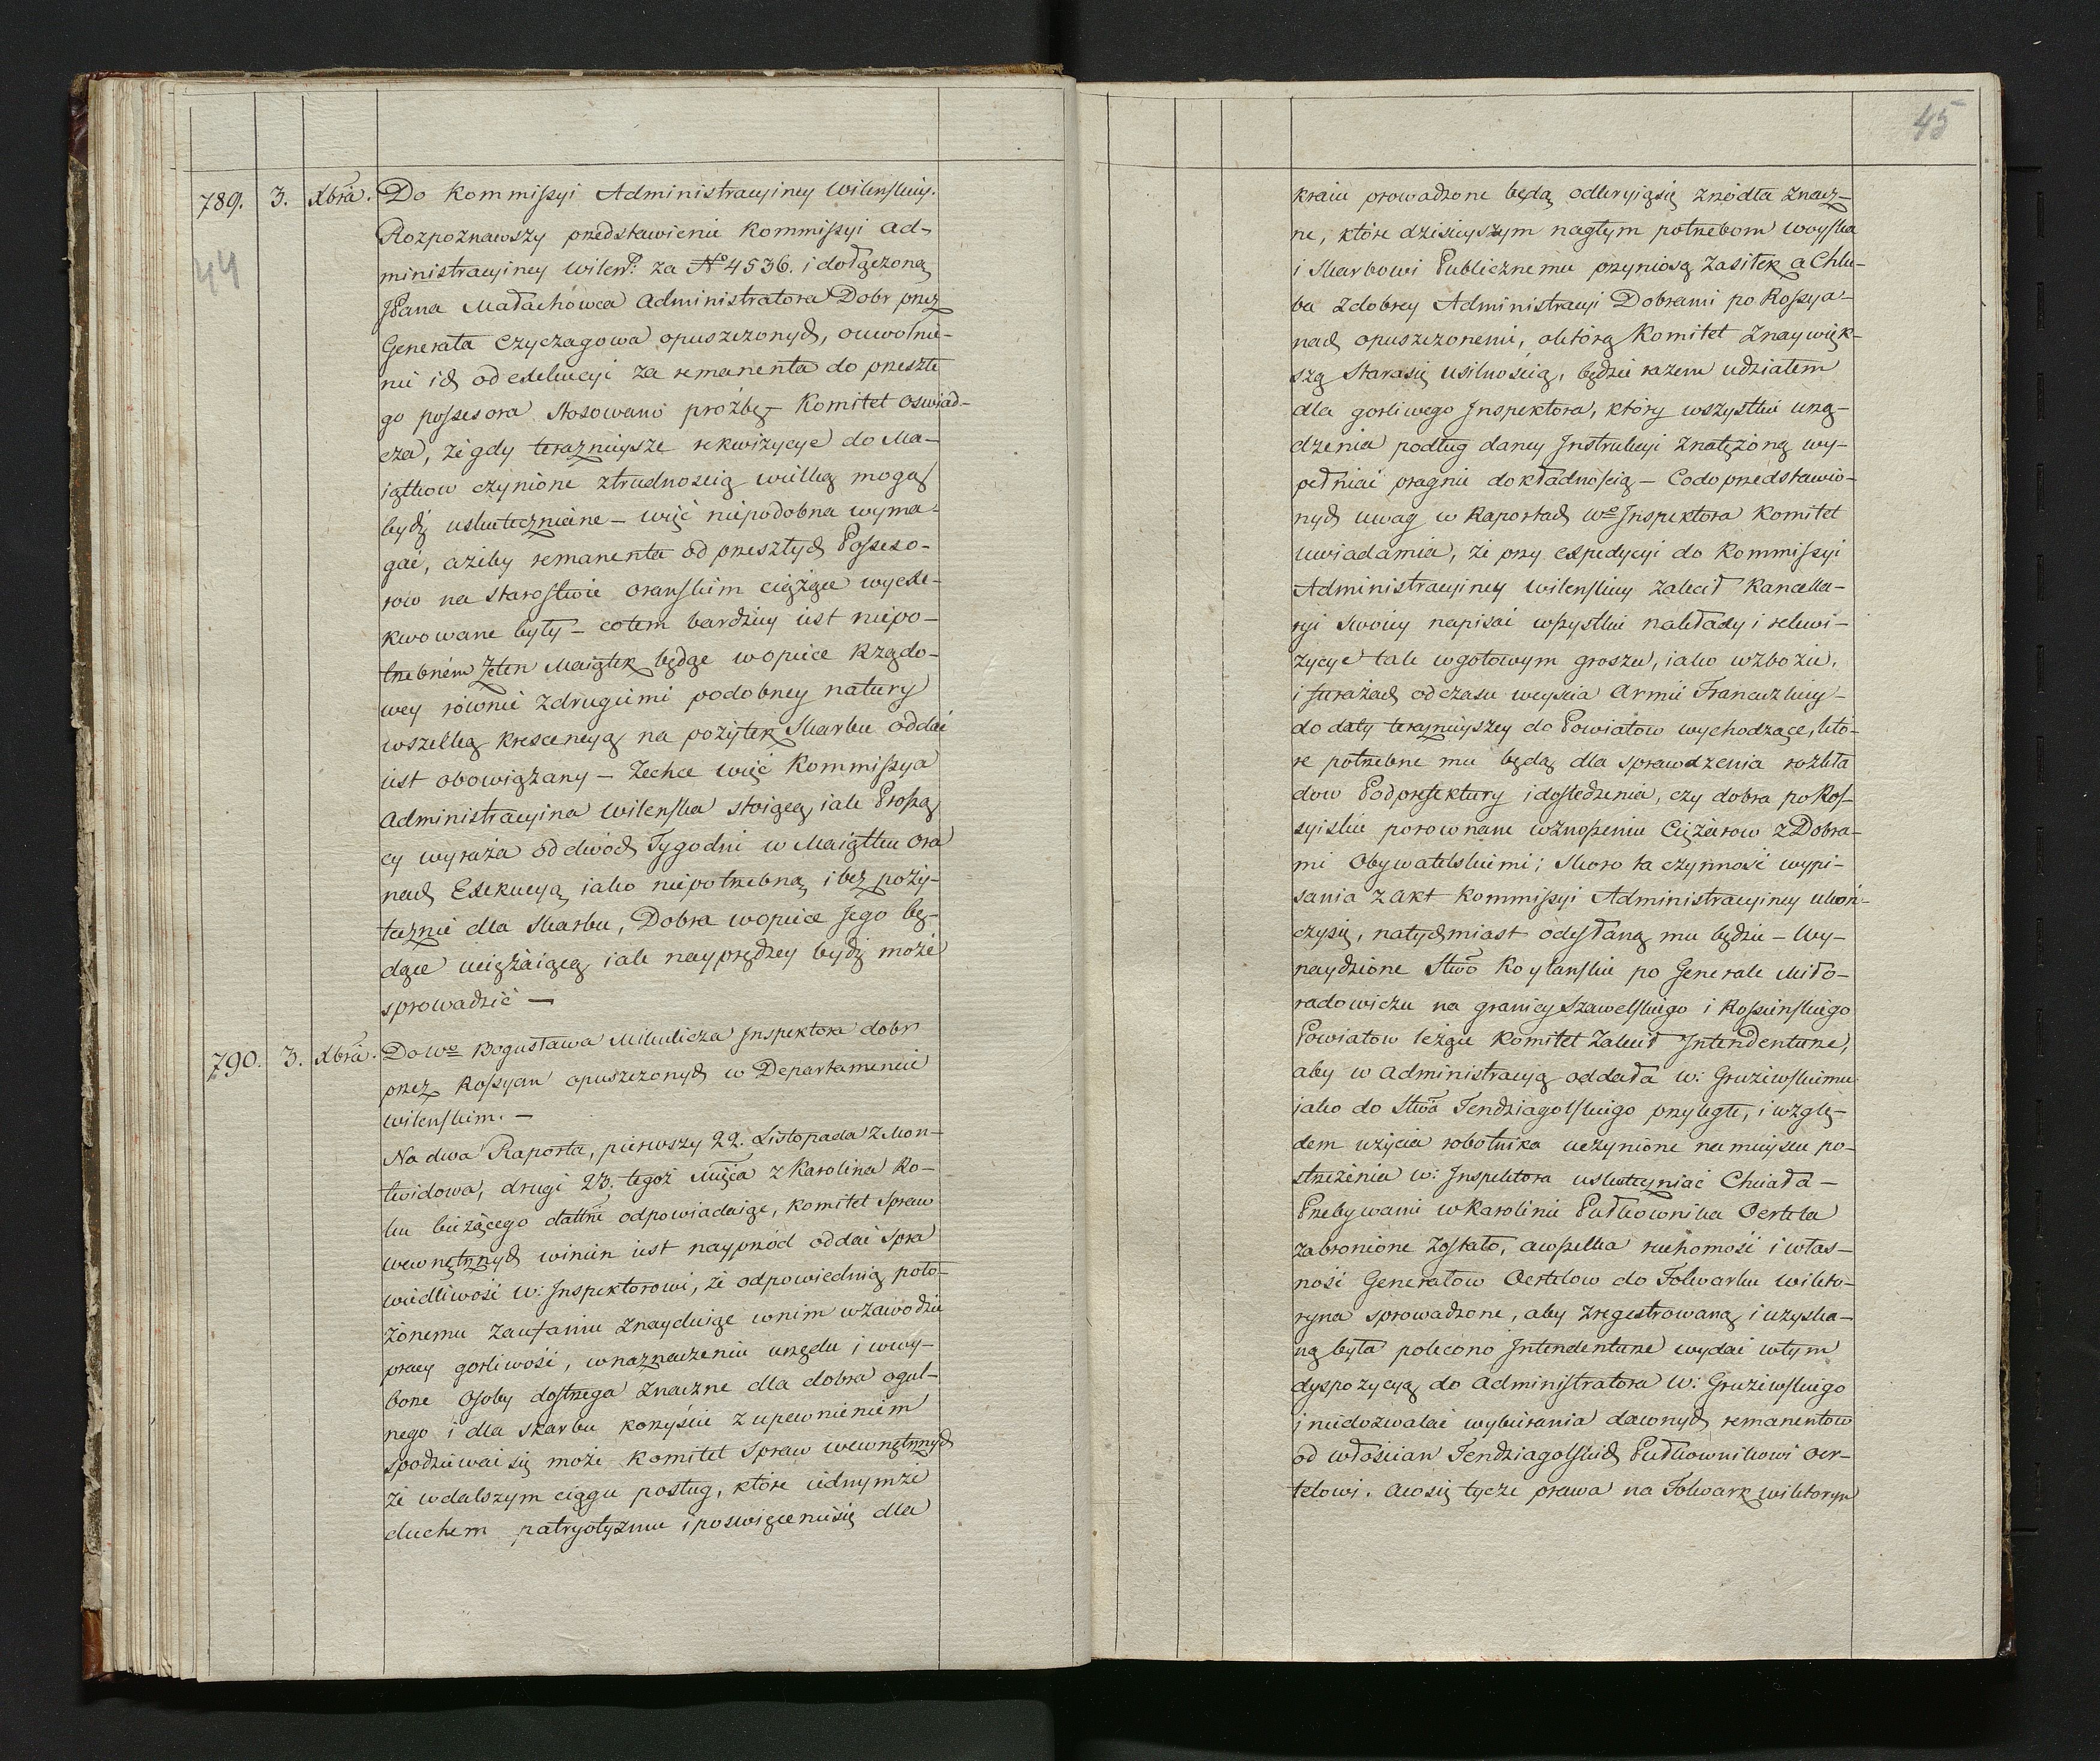 789. 3. Xbra. Do Kommissyi Administracyiney Wilenskiey.
Rozpoznawszy przedstawienie Kommissyi Ad-
44
ministracyiney Wileńs: za No 4536. i dołączoną
JPana Małachowca Administratora Dobr przez
Generała Czyczagowa opuszczonych, o uwolnie-
nie ich od exekucyi za remanenta do przeszłe
go possesora stosowano prożbę – Komitet oswiad-
cza, że gdy teraznieysze rekwizycye do Ma-
iątkow czynione z trudnoscią wielką mogą
bydź uskutecznione – więc niepodobna wyma-
gać, ażeby remanenta od przeszłych Posseso-
row na Starostwie Oranskim ciążące wyexe-
kwowane były – co tem bardziey iest niepo-
trzebnem że ten Maiątek będąc w opiece Rządo-
wey rownie z drugiemi podobney natury
wszelką krescencyą na pożytek Skarbu oddać
iest obowiązany – Zechce więc Kommissya
Administracyina Wilenska stoiącą, iak Proszą
cy wyraża od dwóch Tygodni w Maiątku Ora
nach Exekucyą iako niepotrzebną i bez poży-
tecznie dla Skarbu, Dobra w opiece Jego bę-
dące uciążaiącą iak nayprędzey bydź może
sprowadzić –
790. 3. Xbra. Do Wo Bogusława Mikulicza Inspektora dobr
przez Rossyan opuszczonych w Departamencie
Wilenskim. –
Na dwa Raporta, pierwszy 22. Listopada z Mon-
twidowa, drugi 23. tegoż Mięca z Karolina Ro-
ku bieżącego dattne odpowiadaiąc, Komitet Spraw
Wewnętrznych winien iest nayprzód oddać spra
wiedliwość W: Inspektorowi, że odpowiednią poło-
żonemu zaufaniu znayduiąc w nim w zawodzie
pracy gorliwość, w naznaczeniu urzędu i w wy-
borze Osoby dostrzega znaczne dla dobra ogul-
nego i dla skarbu korzyście z upewnieniem
spodziewać się może Komitet Spraw Wewnętrznych
że w dalszym ciągu posług, które iednymże
duchem patryotyzmu i poswięcenia się dla
45
kraiu prowadzone będą odkryią się zrzódła znacz-
ne, które dzisieyszym nagłym potrzebom woyska
i Skarbowi Publicznemu przyniosą zasiłek a Chlu-
ba z dobrey Administracyi Dobrami po Rossya-
nach opuszczonemi, o którą Komitet z naywięk-
szą stara się usilnością, będzie razem udziałem
dla gorliwego Inspektora, który wszystkie urzą-
dzenia podług daney Instrukcyi z natężoną wy-
pełniać pragnie dokładnością – Co do przedstawio-
nych uwag w Raportach Wo Inspektora Komitet
uwiadamia, że przy expedycyi do Kommissyi
Administracyiney Wilenskiey zalecił Kancella-
ryi swoiey napisać wszystkie nakłady i rekwi-
zycye tak w gotowym groszu, iako w zbożu,
i furażach od czasu weyscia Armii Francuzkiey
do daty teraznieyszey do Powiatow wychodzące, któ-
re potrzebne mu będą dla sprawdzenia rozkła
dow Podprefektury i dosledzenia, czy dobra po Ros-
syiskie porownane w znoszeniu Ciężarow z Dobra-
mi Obywatelskiemi; skoro ta czynność wypi-
sania z akt Kommissyi Administracyiney ukoń-
czy się, natychmiast odesłaną mu będzie – Wy-
naydzione Stwo Koytanskie po Generale Miło-
radowiczu na granicy Szawelskiego i Rossienskiego
Powiatow leżące Komitet zalecił Intendenturze,
aby w administracyą oddała W: Gruziewskiemu
iako do Stwa Tendziagolskiego przyległe, i wzglę-
dem użycia robotnika uczynione na mieyscu po-
strzeżenia W: Inspektora uskuteczniać Chciała –
Przebywanie w Karolinie Pułkownika Oertela
zabronione zostało, a wszelka ruchomość i włas-
ność Generałow Oertelow do Folwarku Wikto-
ryna sprowadzone, aby zregestrowaną i uzyska-
ną była polecono Intendenturze wydać w tym
dyspozycyą do Administratora W: Gruziewskiego
i niedozwalać wybierania dawnych remanentow
od włościan Tendziagolskich Pułkownikowi Oer-
telowi. A co się tycze prawa na Folwark Wiktoryn